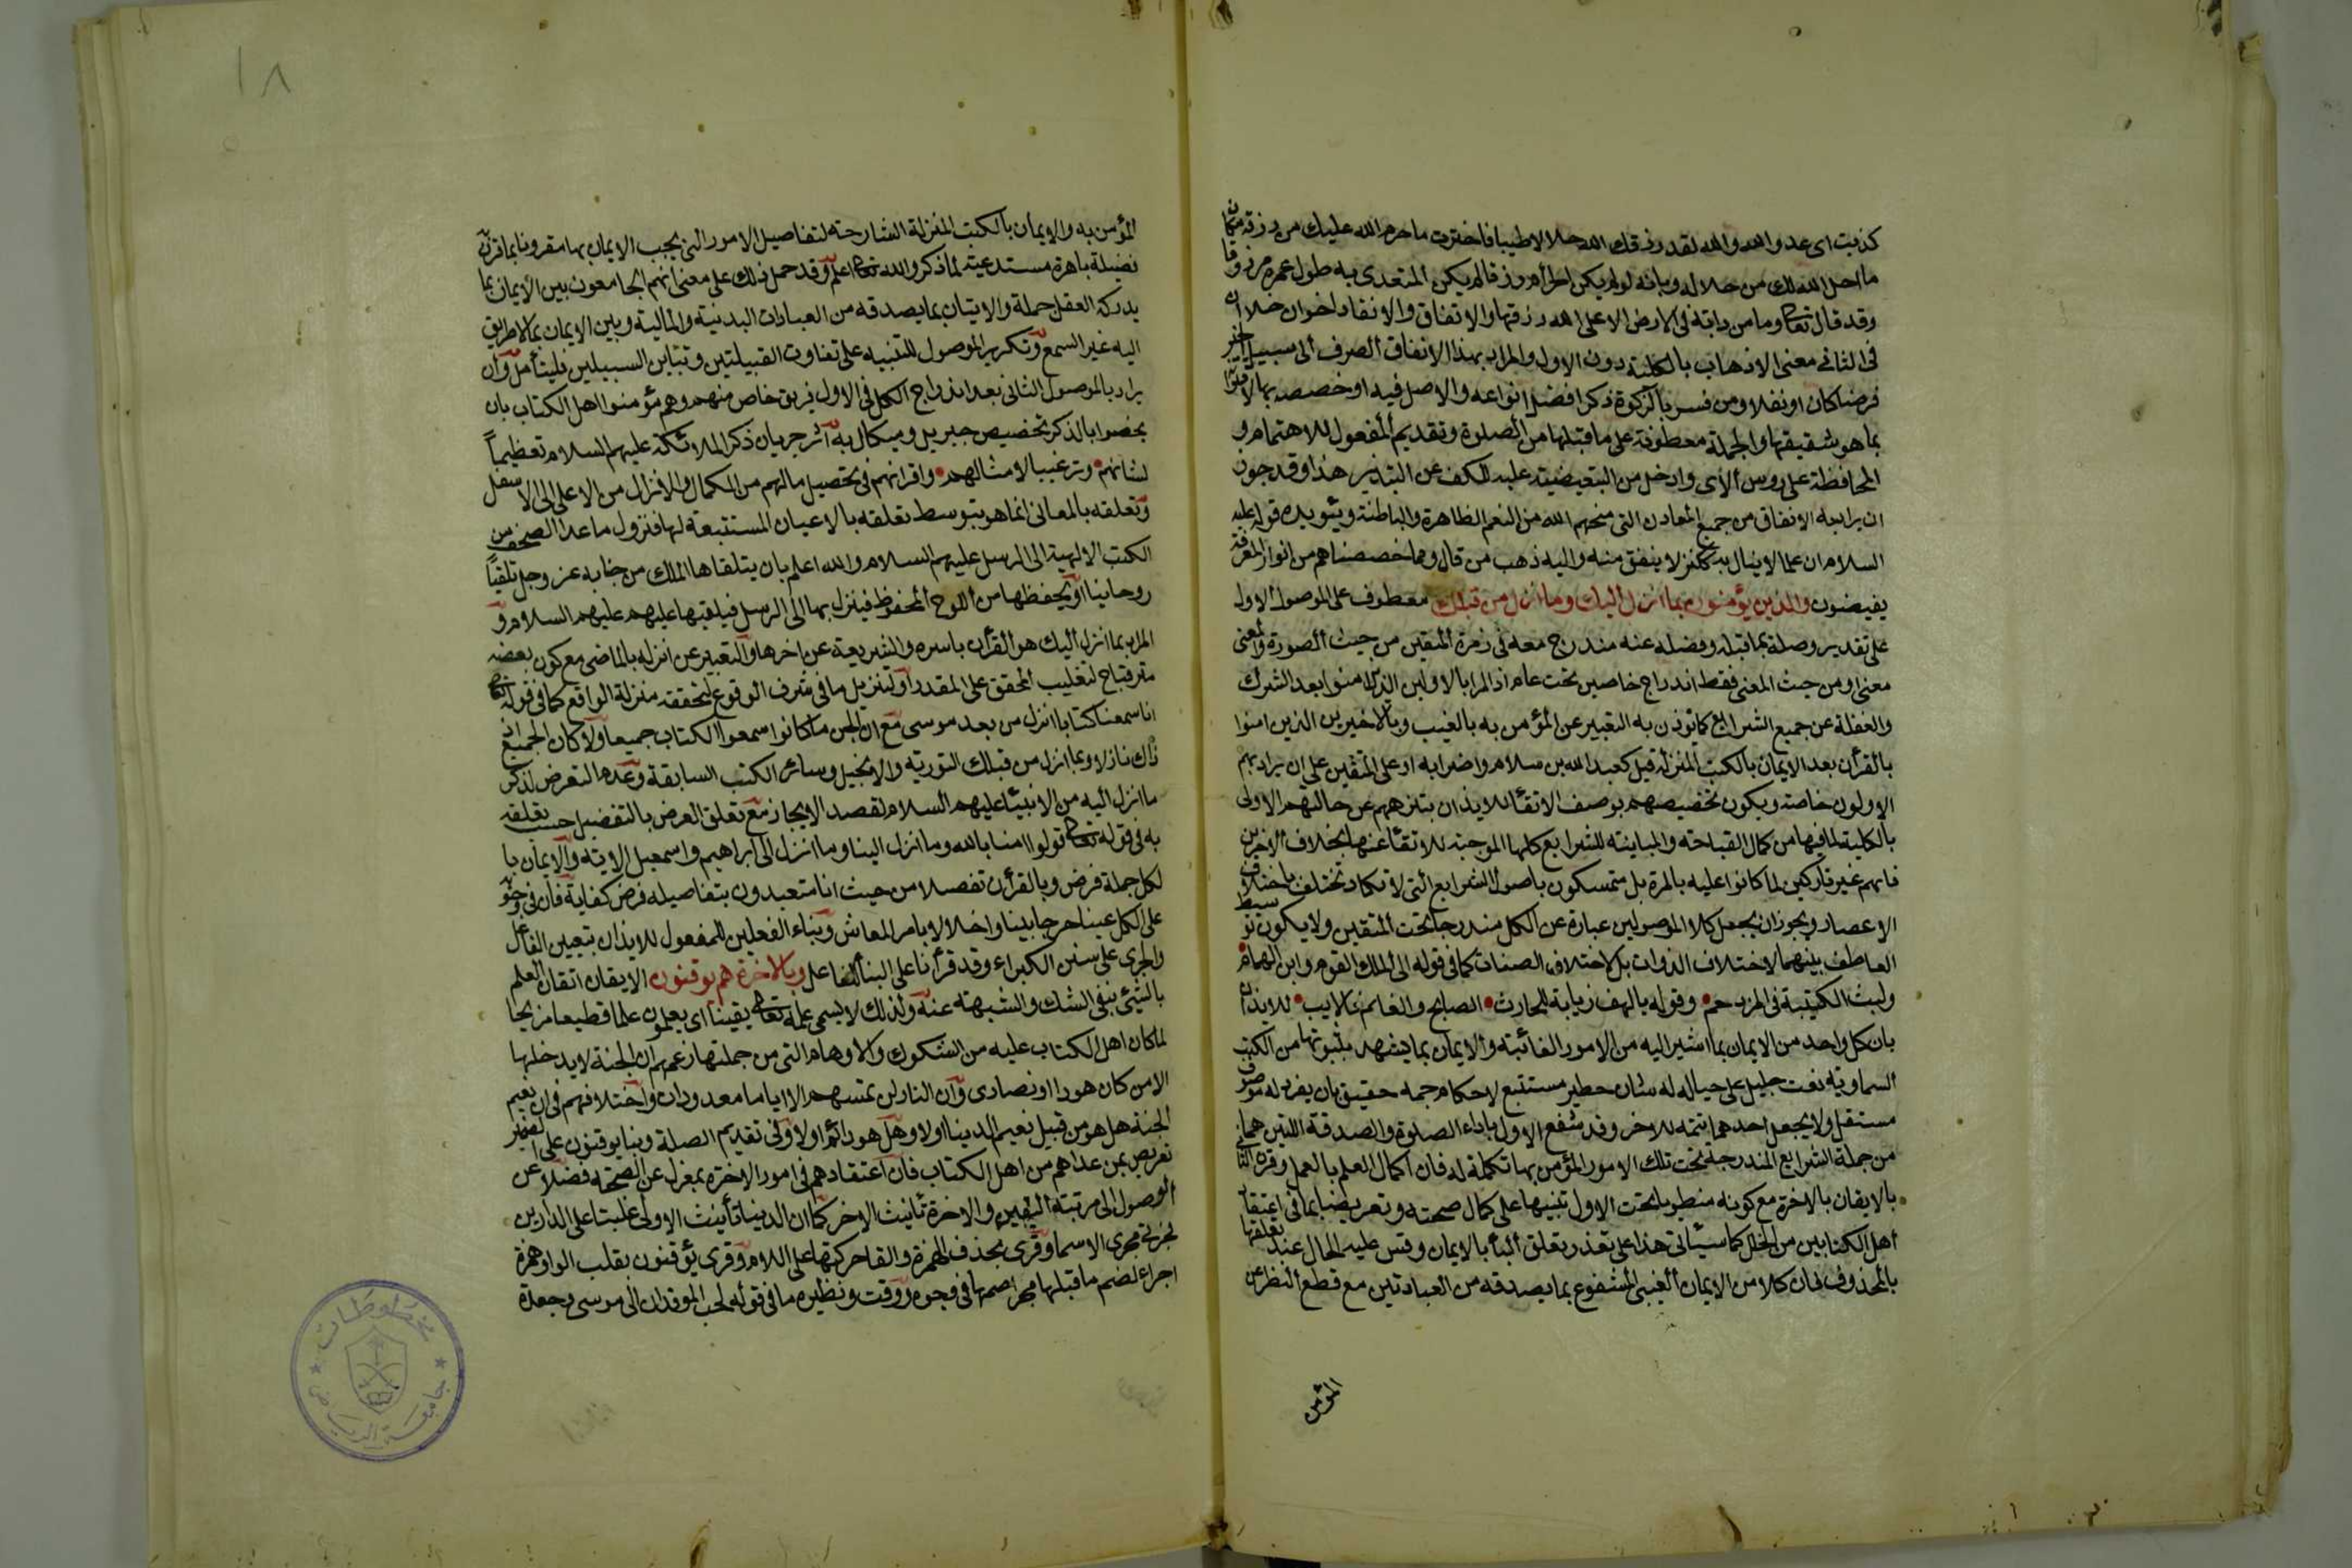 كذبت اى عدو الله والله لقد رزقك الله حلالا طيبا فاخترت ما حرم الله عليك من رزقه مكان
ما احل الله لك من حلاله وبانه لو لم يكن الحرام رزقا لم يكن المتغذى به طول عمره مرزوقا
وقد قال تعالى وما من دابة فى الارض الا على الله رزقها والانفاق والانفاد اخوان خلا ان
فى الثانى معنى الاذهاب بالكلية دون الاول والمراد بهذا الانفاق الصرف الى سبيل الخير
فرضا كان او نفلا ومن فسر بالزكوة ذكر افضل انواعه والاصل فيه او خصصه بها لاقترانه
بما هو شقيقها والجملة معطوفة على ما قبلها من الصلوة وتقديم المفعول للاهتمام و
المحافظة على روس الآى وادخل من التبعيضية عليه للكف عن التبذير هذا وقد جوز
ان يراد به الانفاق من جميع المعادن التى منحهم الله من النعم الظاهرة والباطنة ويؤيده قوله عليه
السلام ان علما لا ينال به ككنز لا ينفق منه واليه ذهب من قال ومما خصصناهم من انوار المعرفة
يفيضون والذين يؤمنون بما انزل اليك وما انزل من قبلك معطوف على الموصول الاول
على تقدير وصله بما قبله وفصله عنه مندرج معه فى زمرة المتقين من حيث الصورة والمعنى
معنى او من حيث المعنى فقط اندراج خاصين تحت عام اذ المراد بالاولين الذين امنوا بعد الشرك
والغفلة عن جميع الشرايع كما يؤذن به التعبير عن المؤمن به بالغيب وبالاخيرين الذين امنوا
بالقرأن بعد الايمان بالكتب المنزلة قبل كعبد الله بن سلام واضرابه او على المتقين على ان يراد بهم
الاولون خاصة ويكون تخصيصهم بوصف الاتقا للايذان بتنزههم عن حالتهم الاولى
بالكلية لما فيها من كمال القباحة والمباينة للشرايع كلها الموجبة للاتقا عنها بخلاف الاخرين
فانهم غير تاركين لما كانوا عليه بالمرة بل متمسكون باصول الشرايع التى لا تكاد تختلف باختلاف
الاعصار ويجوز ان يجعل كلا الموصولين عبارة عن الكل مندرجا تحت المتقين ولا يكون توسيط
العاطف بينهما لاختلاف الذوات بل لاختلاف الصفات كما فى قوله الى الملك القوم وابن الهمام
وليث الكتيبة فى المزدحم وقوله يا لهف زيابة للحارث الصابح والغانم فالايب للايذان
بان كل واحد من الايمان بما اشير اليه من الامور الغائبة والايمان بما يشهد بثبوتها من الكتب
السماوية نعت جليل على حياله له شان خطير مستتبع لاحكام جمه حقيق بان يفرد له موصوف
مستقل ولا يجعل احدهما تتمة للاخر وقد شفع الاول باداء الصلوة والصدقة اللتين هما
من جملة الشرايع المندرجة تحت تلك الامور المؤمن بها تكملة له فان كمال العلم بالعمل وقرن الثانى
بالايقان بالاخرة مع كونه منطويا تحت الاول تنبيها على كمال صحته وتعريضا بما فى اعتقاد
اهل الكتابين من الخلل كما سيأتى هذا على تقدير تعلق البأ بالايمان وقس عليه الحال عند تعلقها
بالمحذوف فان كلا من الايمان الغيبى المشفوع بما يصدقه من العبادتين مع قطع النظر عن
المؤمن
١٨
المؤمن به والايمان بالكتب المنزلة الشارحة لتفاصيل الامور التى يجب الايمان بها مقرونا بما قرن به
فضيلة باهرة مستدعية لما ذكر والله تعالى اعلم وقد حمل ذلك على معنى انهم الجامعون بين الايمان بما
يدركه العقل جملة والاتيان بما يصدقه من العبادات البدنية والمالية وبين الايمان بما لا طريق
اليه غير السمع وتكرير الموصول للتنبيه على تفاوت القبيلتين وتباين السبيلين فليتأمل وان
يراد بالموصول الثانى بعد اندراج الكل فى الاول فريق خاص منهم وهم مؤمنوا اهل الكتاب بان
يخصوا بالذكر تخصيص جبريل وميكال به اثر جريان ذكر الملائكة عليهم السلام تعظيماً
لشانهم وترغيبا لامثالهم واقرانهم فى تحصيل ما لهم من الكمال والانزال من الاعلى الى الاسفل
وتعلقه بالمعانى انما هو بتوسط تعلقه بالاعيان المستتبعة لها فنزول ما عدا الصحف من
الكتب الالهية الى الرسل عليهم السلام والله اعلم بان يتلقاها الملك من جنابه عز وجل تلقياً
روحانيا او يحفظها من اللوح المحفوظ فينزل بها الى الرسل فيلقيها عليهم عليهم السلام و
المراد بما انزل اليك هو القرأن باسره والشريعة عن اخرها والتعبير عن انزاله بالماضى مع كون بعضه
مترقبا ح لتغليب المحقق على المقدر او لتنزيل ما فى شرف الوقوع لتحققه منزلة الواقع كما فى قوله تعالى
انا سمعنا كتابا انزل من بعد موسى مع ان الجن ما كانوا سمعوا الكتاب جميعا ولا كان الجميع اذ
ذاك نازلا وبما انزل من قبلك التورية والانجيل وسائر الكتب السابقة وعدم التعرض لذكر
ما انزل اليه من الانبيأ عليهم السلام لقصد الايجاز مع تعلق الغرض بالتفصيل حسب تعلقه
به فى قوله تعالى قولوا امنا بالله وما انزل الينا وما انزل الى ابراهيم واسمعيل الاية والايمان با
لكل جملة فرض وبالقرأن تفصيلا من حيث انا متعبدون بتفاصيله فرض كفاية فان فى وجوبه
على الكل عينا حرجا بينا واخلالا بامر المعاش وبناء الفعلين للمفعول للايذان بتعيين الفاعل
والجرى على سنن الكبراء وقد قرأنا على البنأ للفاعل وبالاخرة هم يوقنون الايقان اتقان العلم
بالشئ بنفى الشك والشبهة عنه ولذلك لا يسمى علمه تعالى يقينا اى يعلمون علما قطيعا مزيحا
لما كان اهل الكتاب عليه من الشكوك والاوهام التى من جملتها زعمهم ان الجنة لا يدخلها
الا من كان هودا او نصارى وان النار لن تمسهم الا اياما معدودات واختلافهم فى ان نعيم
الجنة هل هو من قبيل نعيم الدينا او لا وهل هو دائم او لا وفى تقديم الصلة وبنا يوقنون على الضمير
تعريض بمن عداهم من اهل الكتاب فان اعتقادهم فى امور الاخرة بمعزل عن الصحة فضلا عن
الوصول الى مرتبة اليقين والاخرة تانيث الاخر كما ان الدنيا تأنيث الادنى غلبتا على الدارين
فجرتا مجرى الاسما وقرى بحذف الهمزة والقا حركتها على اللام وقرى يؤقنون بقلب الواو همزة
اجراء لضم ما قبلها مجرى ضمها فى وجوه ووقتت ونظيره ما فى قوله لحب الموقدان الى موسى وجعدة
جامعة الرياض